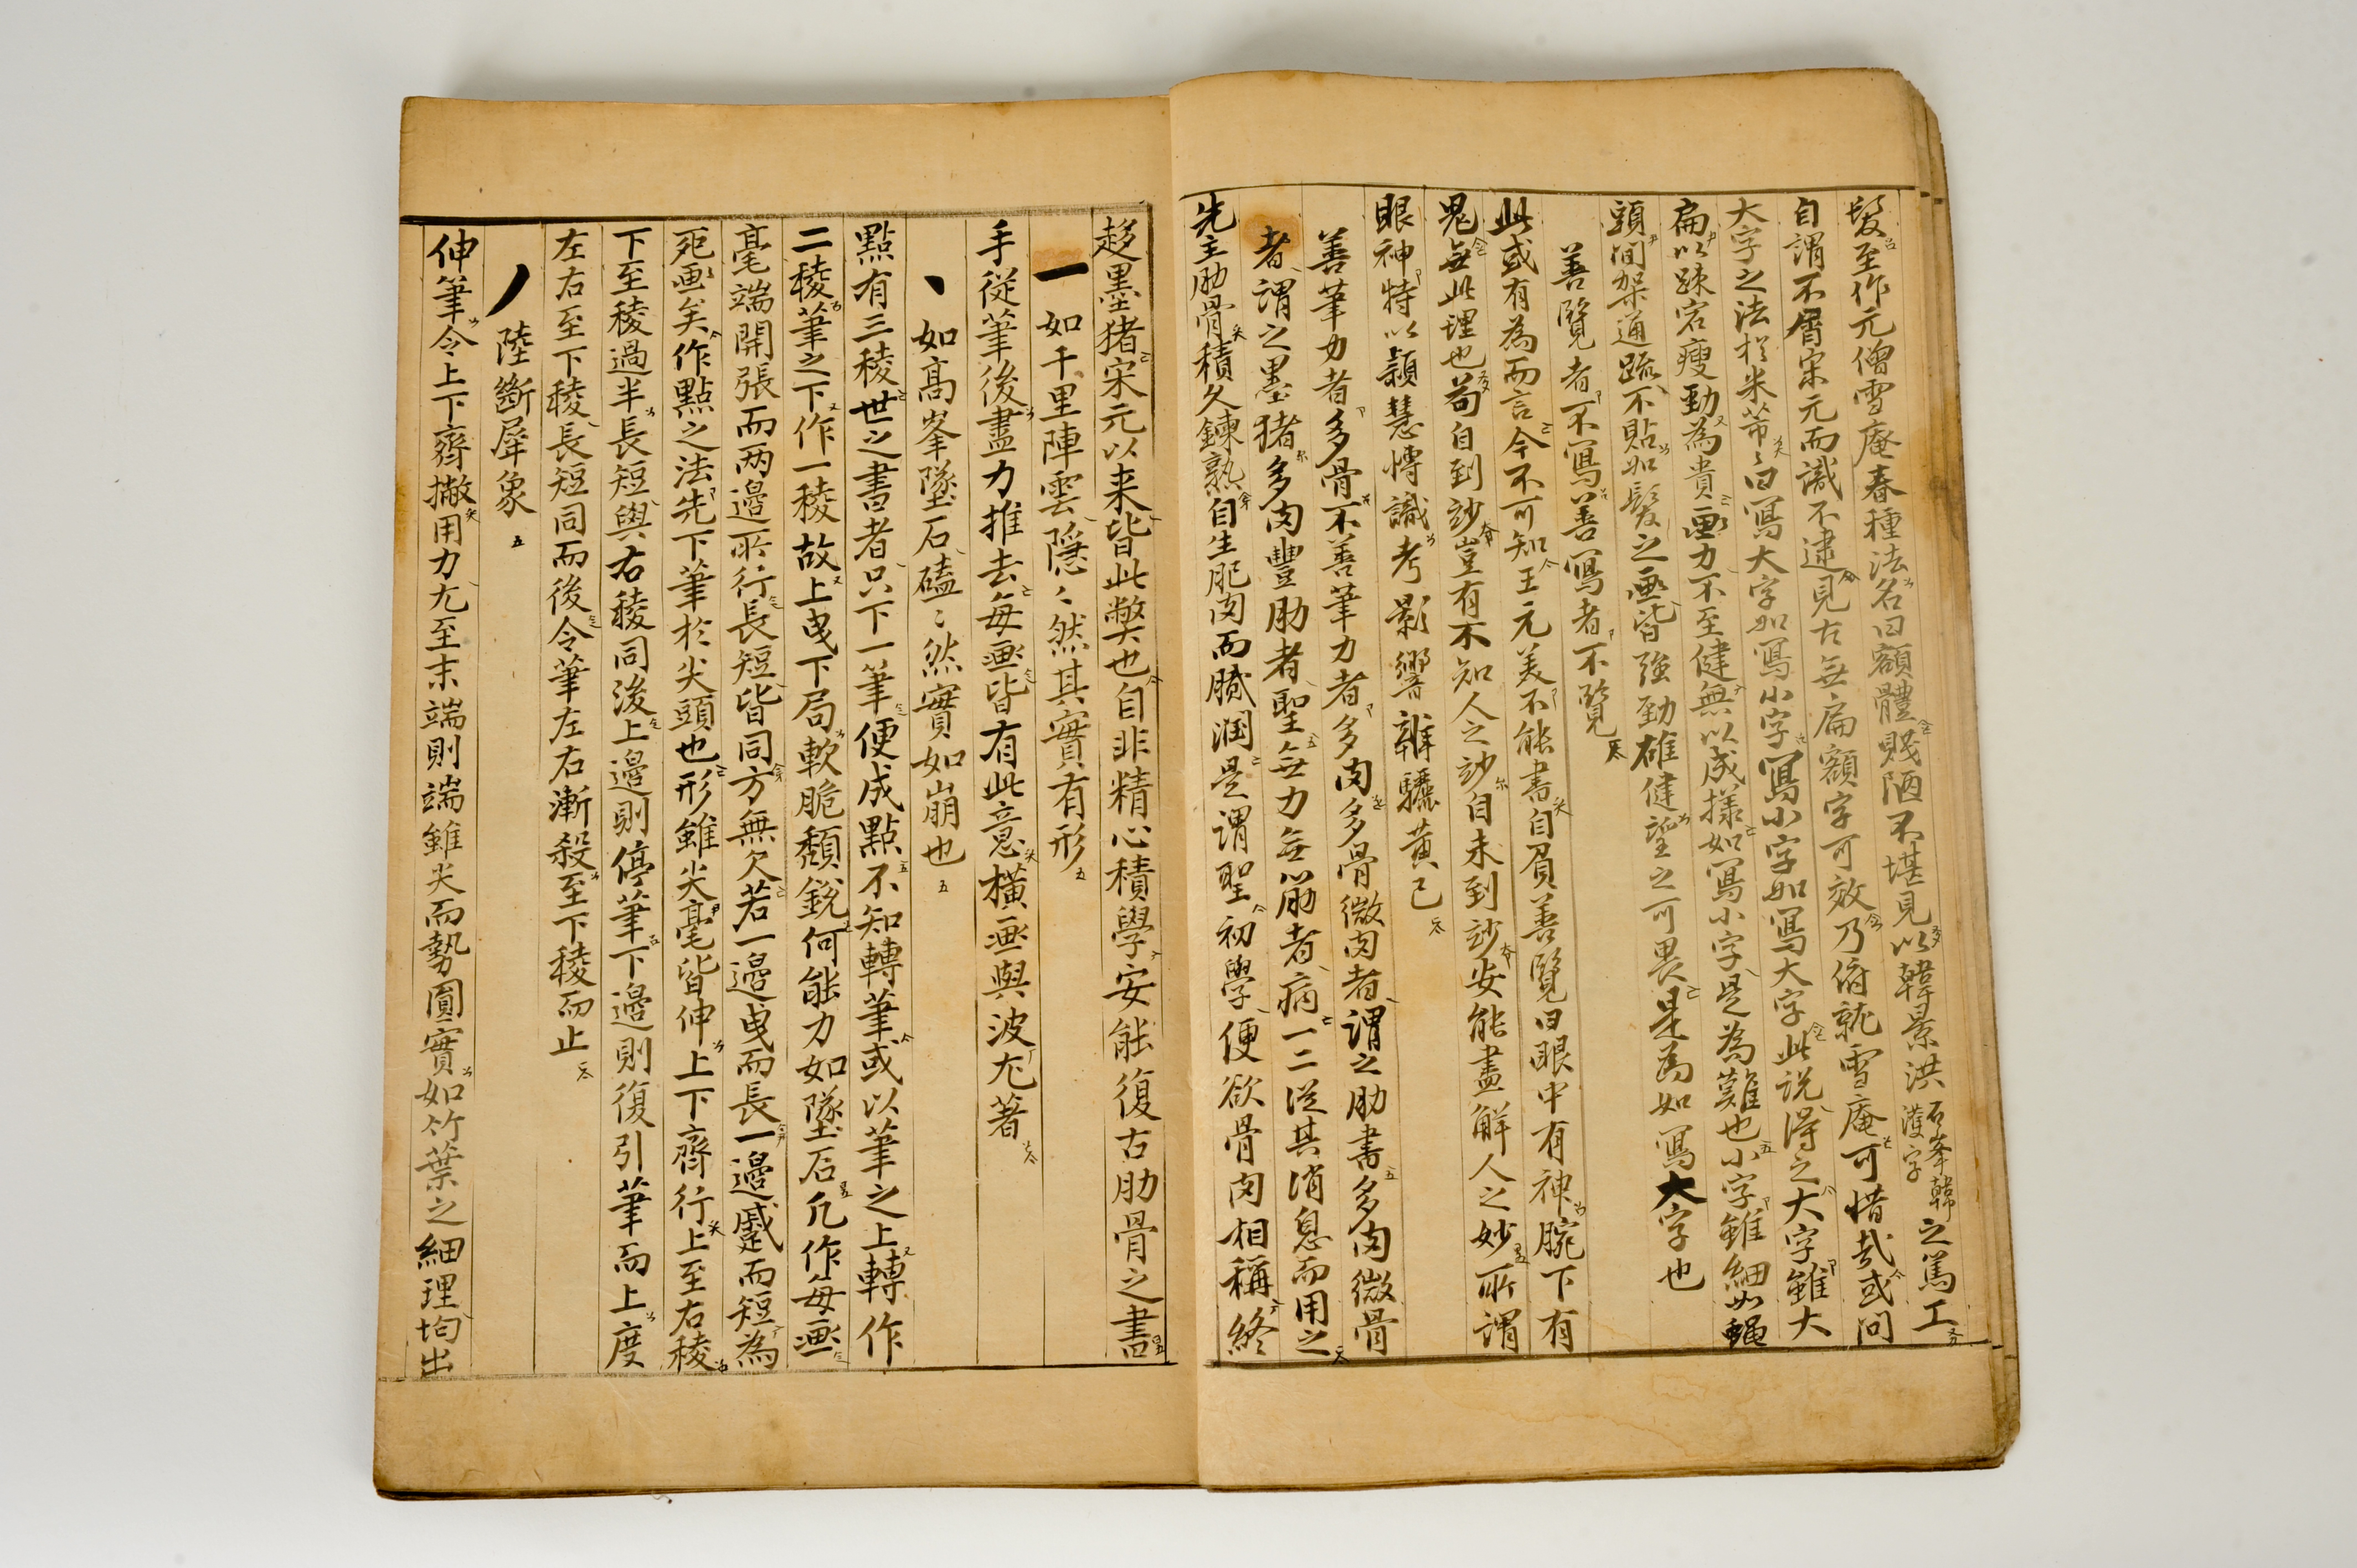 髮至作元僧雪庵春種法名曰額體賤陋不堪見以韓景洪石峯韓濩字之篤工
自謂不屑宋元而識不逮見古無扁額字可效乃俯就雪庵可惜哉或問
大字之法於米芾〻曰寫大字如寫小字寫小字如寫大字此說得之大字雖大
扁以踈宕瘦勁為貴畫力不至健無以成㨾如寫小字是為難也小字雖細如蠅
頭間架通踈不貼如髮之畫皆強勁雄健望之可畏是為如寫大字也
善覽者不寫善寫者不覽
此或有為而言今不可知王元美不能書自負善覽曰眼中有神腕下有
鬼無此理也苟自到妙豈有不知人之妙自未到妙安能盡解人之妙所謂
眼神特以穎慧博識考影響雜驪黃已
善筆力者多骨不善筆力者多肉多骨微肉者謂之肋書多肉微骨
者謂之墨猪多肉豐肋者聖無力無肋者病一二從其消息而用之
先主肋骨積久鍊熟自生肥肉而膩潤是謂聖初學便欲骨肉相稱終
趍墨猪宋元以来皆此弊也自非精心積學安能復古肋骨之書
一 如千里陣雲隱〻然其實有形
手從筆後盡力推去每畫皆有此意橫畫與波尤著
丶 如高峯墜石磕〻然實如崩也
點有三稜世之書者只下一筆便成點不知轉筆或以筆之上轉作
二稜筆之下作一稜故上曳下局軟脆頹銳何能力如墜石凡作每畫
毫端開張而兩邊所行長短皆同方無欠若一邊曳而長一邊蹙而短為
死畫矣作點之法先下筆於尖頭也形雖尖毫皆伸上下齊行上至右稜
下至稜過半長短與右稜同後上邊則停筆下邊則復引筆而上度
左右至下稜長短同而後令筆左右漸殺至下稜而止
丿 陸斷犀象
伸筆令上下齊撇用力尤至末端則端雖尖而勢圓實如竹葉之細理均出